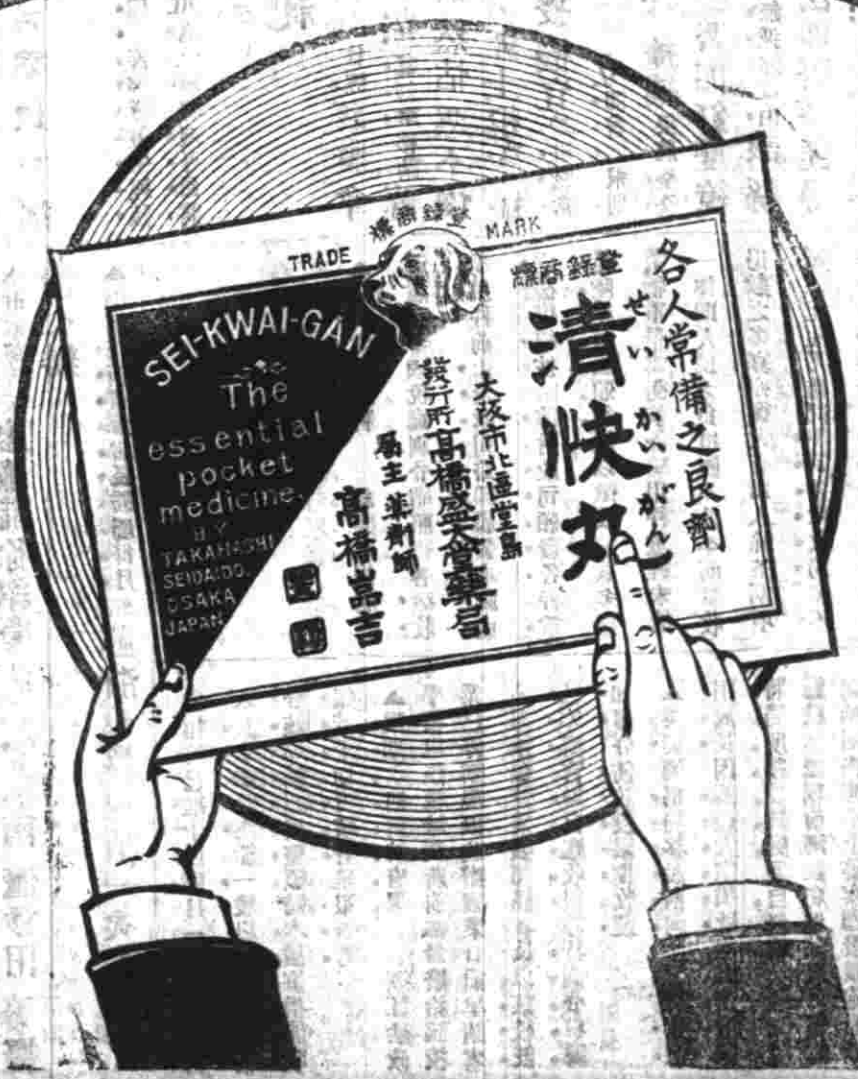 標商錄登
TRADE MARK
各人常備之良劑
標商錄登
清快丸
せいかいがん
大阪市北區堂島
發行所高橋盛大堂藥局
局主薬劑師
高橋嘉吉
SEI-KWAI-GAN
The
essential
pocket
medicine.
BY
TAKAHASHI
SEIDAIDO.
OSAKA
JAPAN.